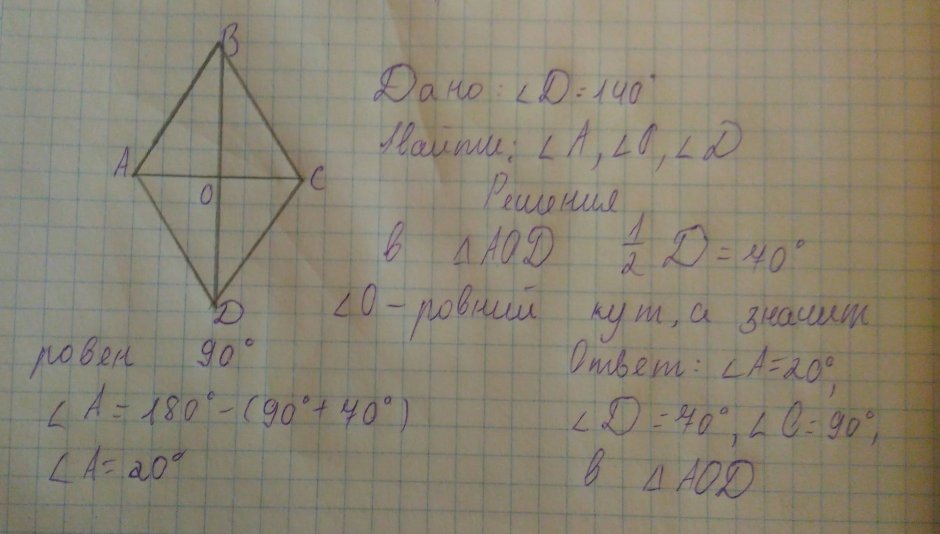 B
Дано: ∠D=140°
Найти: ∠A, ∠O, ∠D
A
O
C
Решения
в △AOD 1/2 D=70°
D
∠O-ровний кут, а значит
ровен 90°
∠A=180°-(90°+70°)
∠A=20°
Ответ: ∠A=20°,
∠D=70°, ∠O=90°,
в △AOD